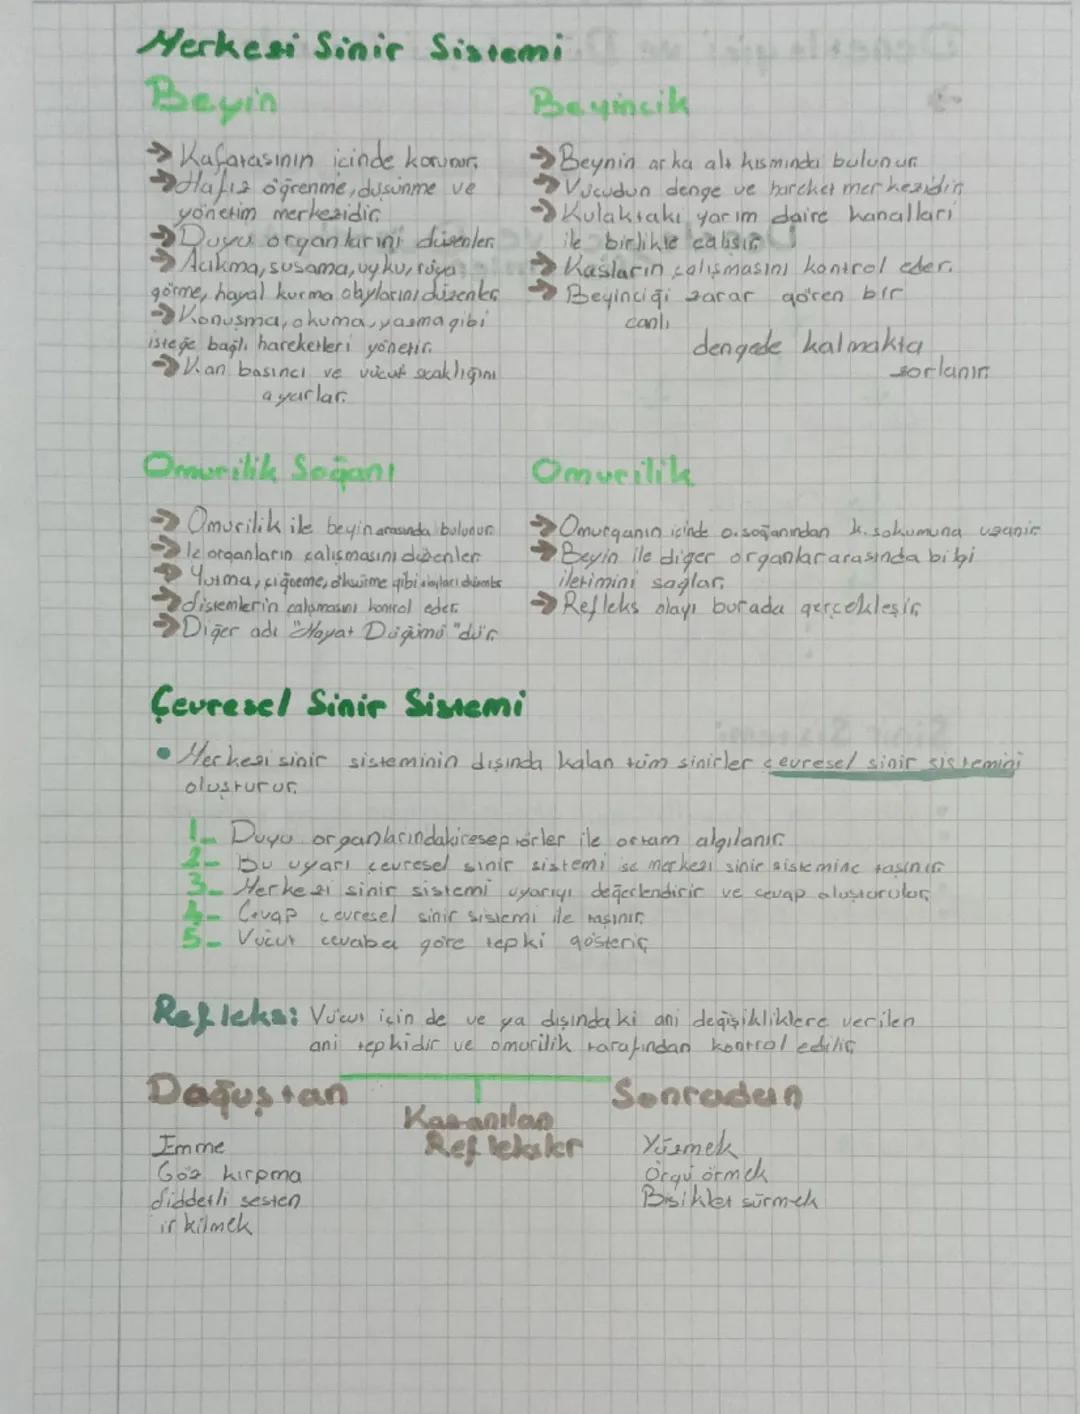 Merkezi Sinir Sistemi
Beyin
→ Kafatasının içinde korunur.
→ Hafız öğrenme, düşünme ve
yönetim merkezidir.
→ Duyu organlarını düzenler.
→ Acıkma, susama, uyku, rüya
görme, hayal kurma olaylarını düzenler
→ Konuşma, okuma, yazma gibi
isteğe bağlı hareketleri yönetir.
→ Kan basıncı ve vücut scaklığını
ayarlar.
Beyincik
→ Beynin arka alt kısmında bulunur.
→ Vücudun denge ve hareket merkezidir.
→ Kulaktaki yarım daire kanalları
ile birlikte çalışır.
→ Kasların çalışmasını kontrol eder.
→ Beyinciği zarar gören bir
canlı
dengede kalmakta
zorlanır.
Omurilik Soğanı
→ Omurilik ile beyin arasında bulunur.
→ İç organların çalışmasını düzenler.
→ Yutma, çiğneme, öksürme gibi olayları düzenler
→ Sistemlerin çalışmasını kontrol eder.
→ Diğer adı "Hayat Düğümü"dür.
Omurilik
→ Omurganın içinde o. soğanından k. sokumuna uzanır.
→ Beyin ile diğer organlar arasında bilgi
iletimini sağlar.
→ Refleks olayı burada gerçekleşir.
Çevresel Sinir Sistemi
• Merkezi sinir sisteminin dışında kalan tüm sinirler çevresel sinir sistemini
oluşturur.
1_ Duyu organlarındaki reseptörler ile ortam algılanır.
2_ Bu uyarı çevresel sinir sistemi merkezi sinir sistemine taşınır.
3_ Merkezi sinir sistemi uyarıyı değerlendirir ve cevap oluşturulur.
4_ Cevap çevresel sinir sistemi ile taşınır.
5_ Vücut cevaba göre tepki gösterir.
Refleks: Vücut için de ve ya dışındaki ani değişikliklere verilen
ani tepkidir ve omurilik tarafından kontrol edilir.
Doğuştan
Kazanılan
Refleksler
Sonradan
Emme
Göz kırpma
Şiddetli sesten
irkilmek
Yüzmek
Örgü örmek
Bisiklet sürmek